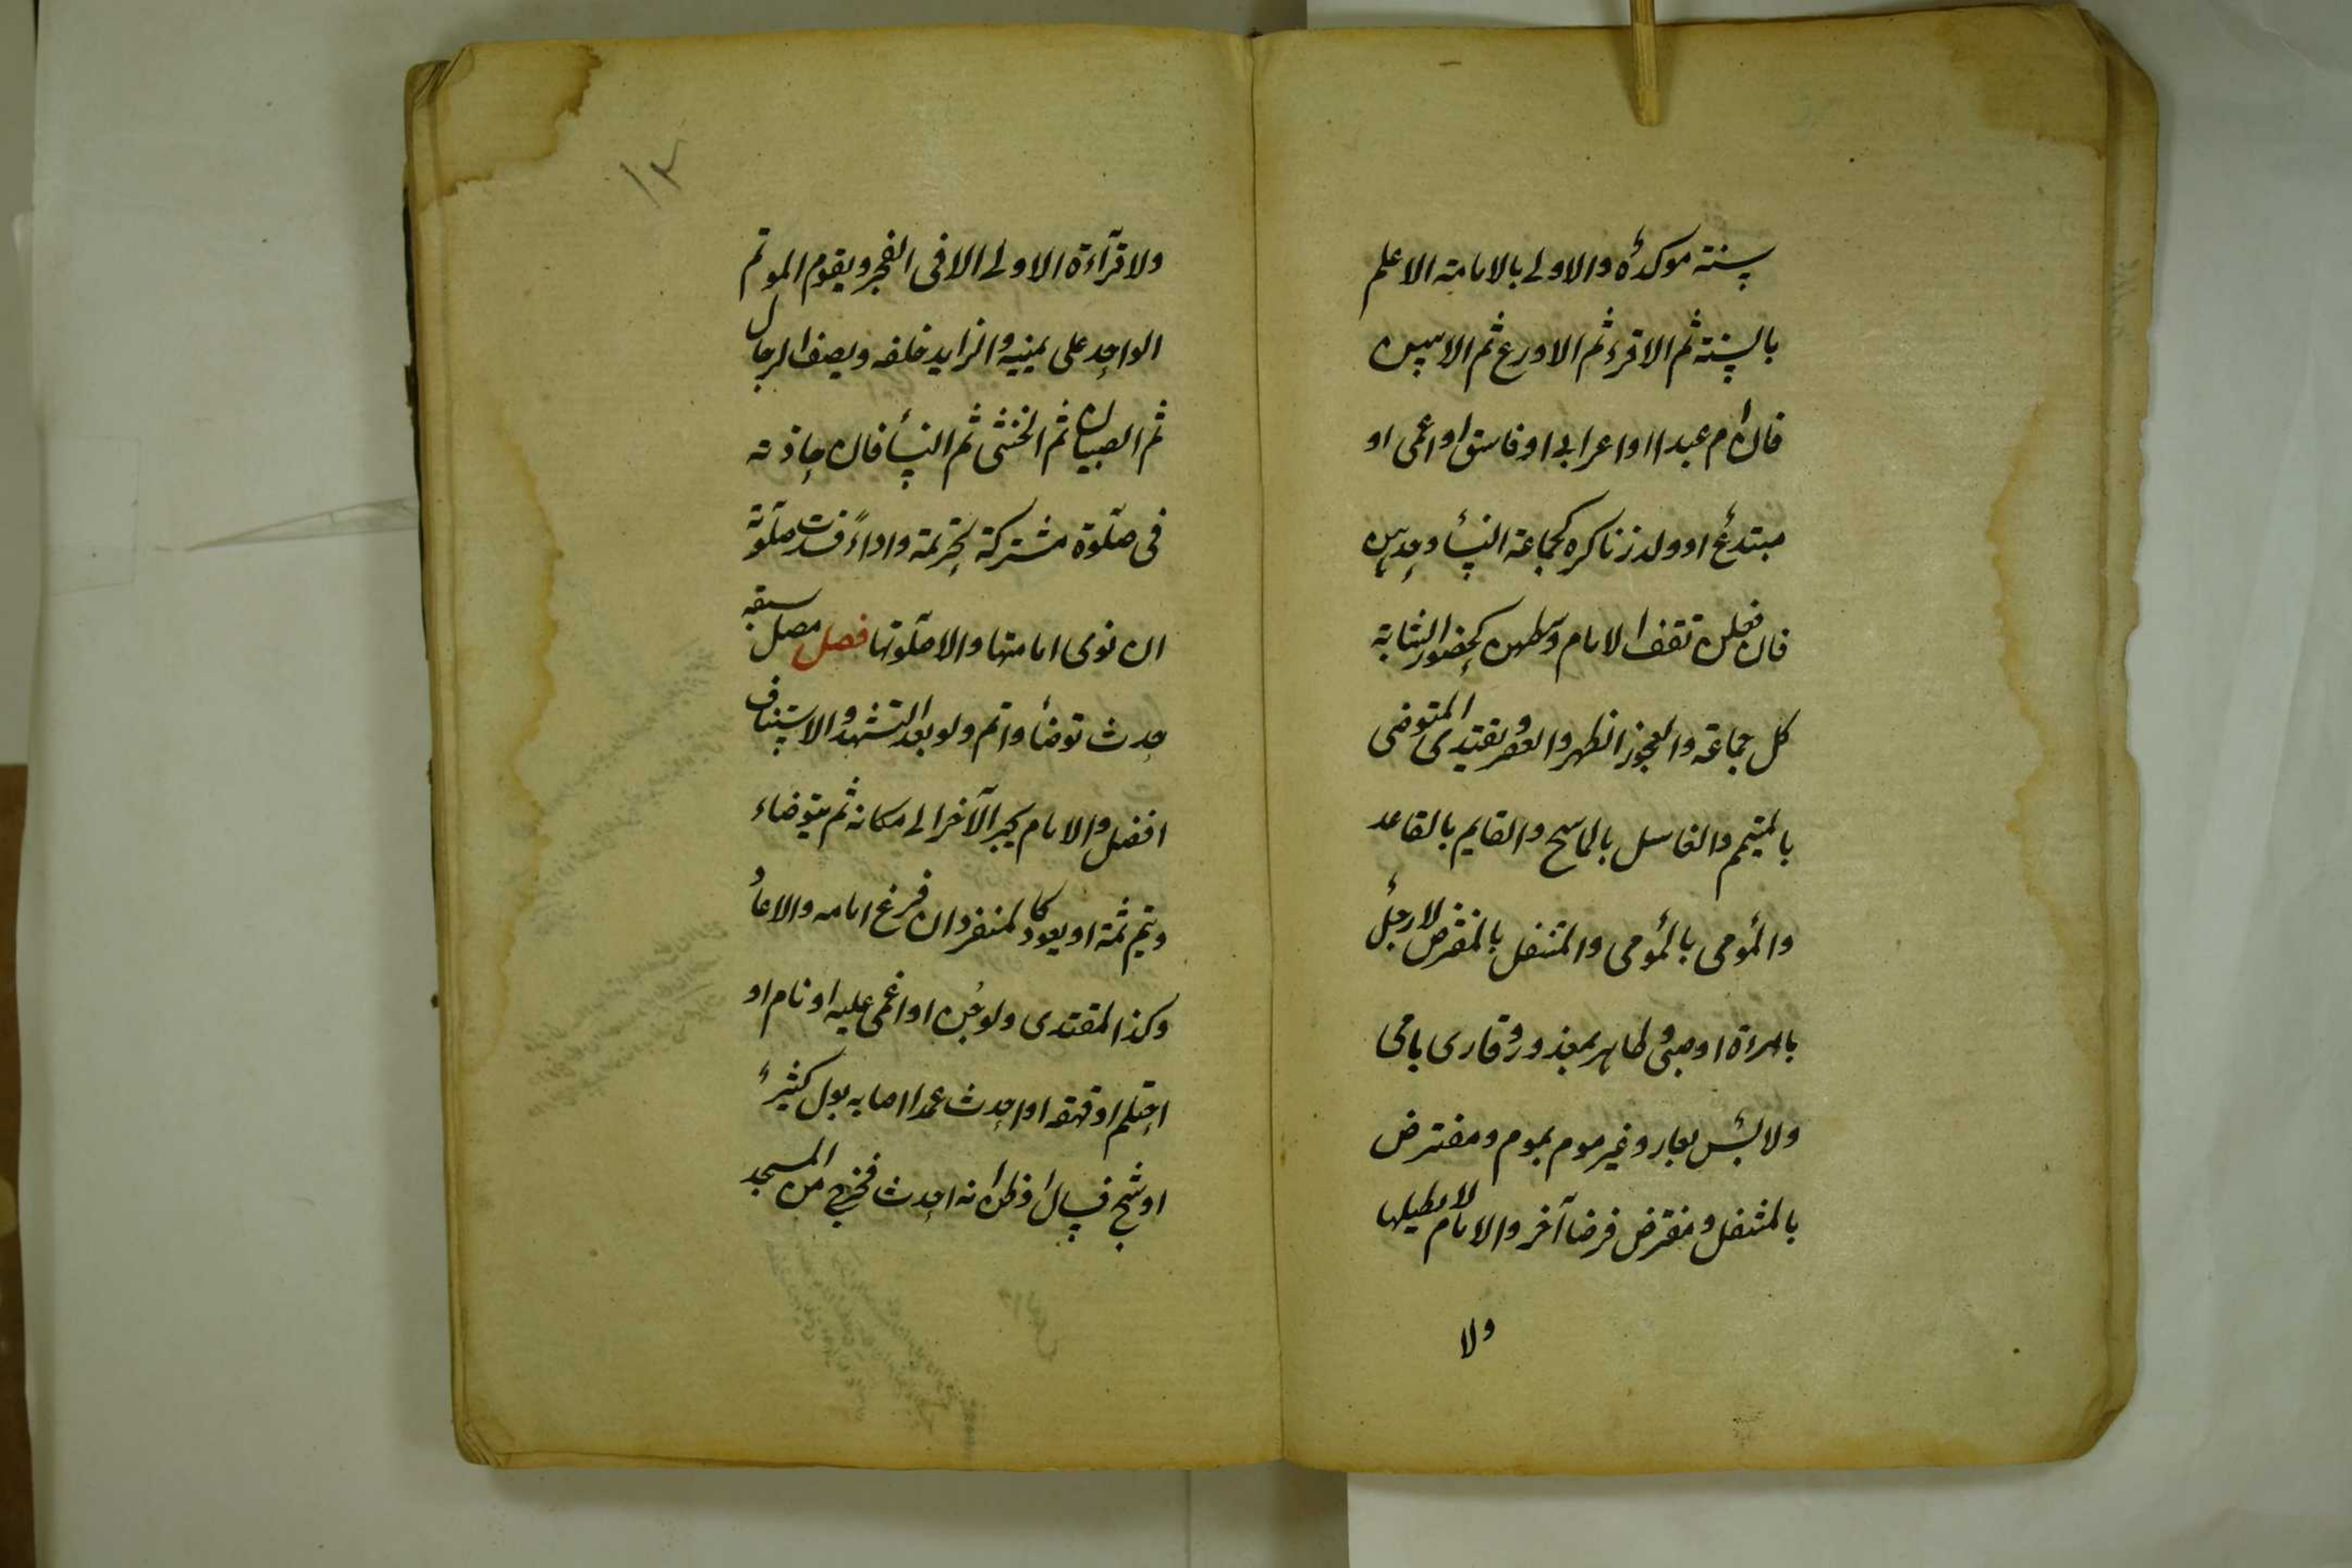 سنة موكدة والاولى بالامامة الاعلم
بالسنة ثم الاقرء ثم الاورع ثم الاسن
فان ام عبد او اعرابى او فاسق او اعمى او
مبتدع او ولد زنا كره كجماعة النسأ وحدهن
فان فعلن تقف الامام وسطهن كحضور الشابة
كل جماعة والعجوز الظهر والعصر ويقتدى المتوضى
بالمتيمم والغاسل بالماسح والقايم بالقاعد
والمومى بالمومى والمتنفل بالمفترض لا رجل
بامرءة او صبى وطاهر بمعذور وقارى بامى
ولابس بعار وغير موم بموم ومفترض
بالمتنفل ومفترض فرضا آخر والامام لا يطيلها
ولا
١٢
ولا قرآءة الاولى الا فى الفجر ويقوم الموتم
الواحد على يمينه والزايد خلفه ويصف الرجال
ثم الصبيان ثم الخنثى ثم النسأ فان حاذته
فى صلوة مشتركة تحريمة واداءً فسدت صلوته
ان نوى امامتها والا صلوتها فصل مصل سبقه
حدث توضأ واتم ولو بعد التشهد والاستيناف
افضل والامام يجر الآخر الى مكانه ثم يتوضاء
ويتم ثمة او يعود كالمنفرد ان فرغ امامه والا عاد
وكذا المقتدى ولو جن او اغمى عليه او نام او
احتلم او قهقه او احدث عمدا اصابه بول كثير
او شج فسال او ظن انه احدث فخرج من المسجد